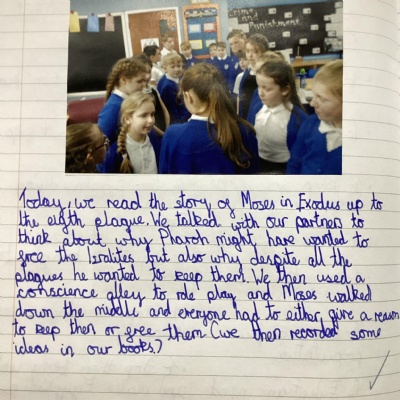 Crime
and
Punishment
Today, we read the story of Moses in Exodus up to
the eighth plague. We talked with our partners to
think about why Pharoh might have wanted to
free the Isralites but also why despite all the
plagues he wanted to keep them. We then used a
conscience alley to role play and Moses walked
down the middle and everyone had to either give a reason
to keep then or free them. (we then recorded some
ideas in our books.)